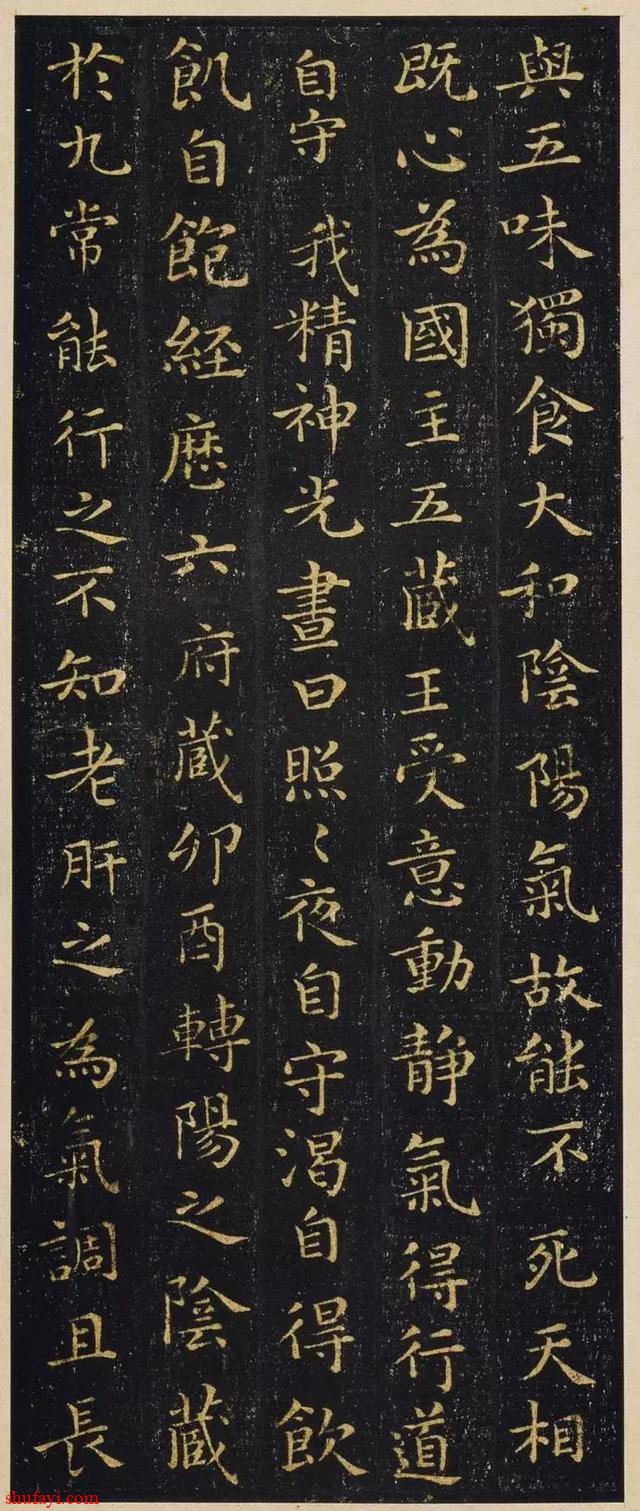 與五味獨食大和陰陽氣故能不死天相
既心為國主五藏王受意動静氣得行道
自守我精神光晝日照〻夜自守渴自得飲
飢自飽經歷六府藏卯酉轉陽之陰藏
於九常能行之不知老肝之為氣調且長
shufayi.com